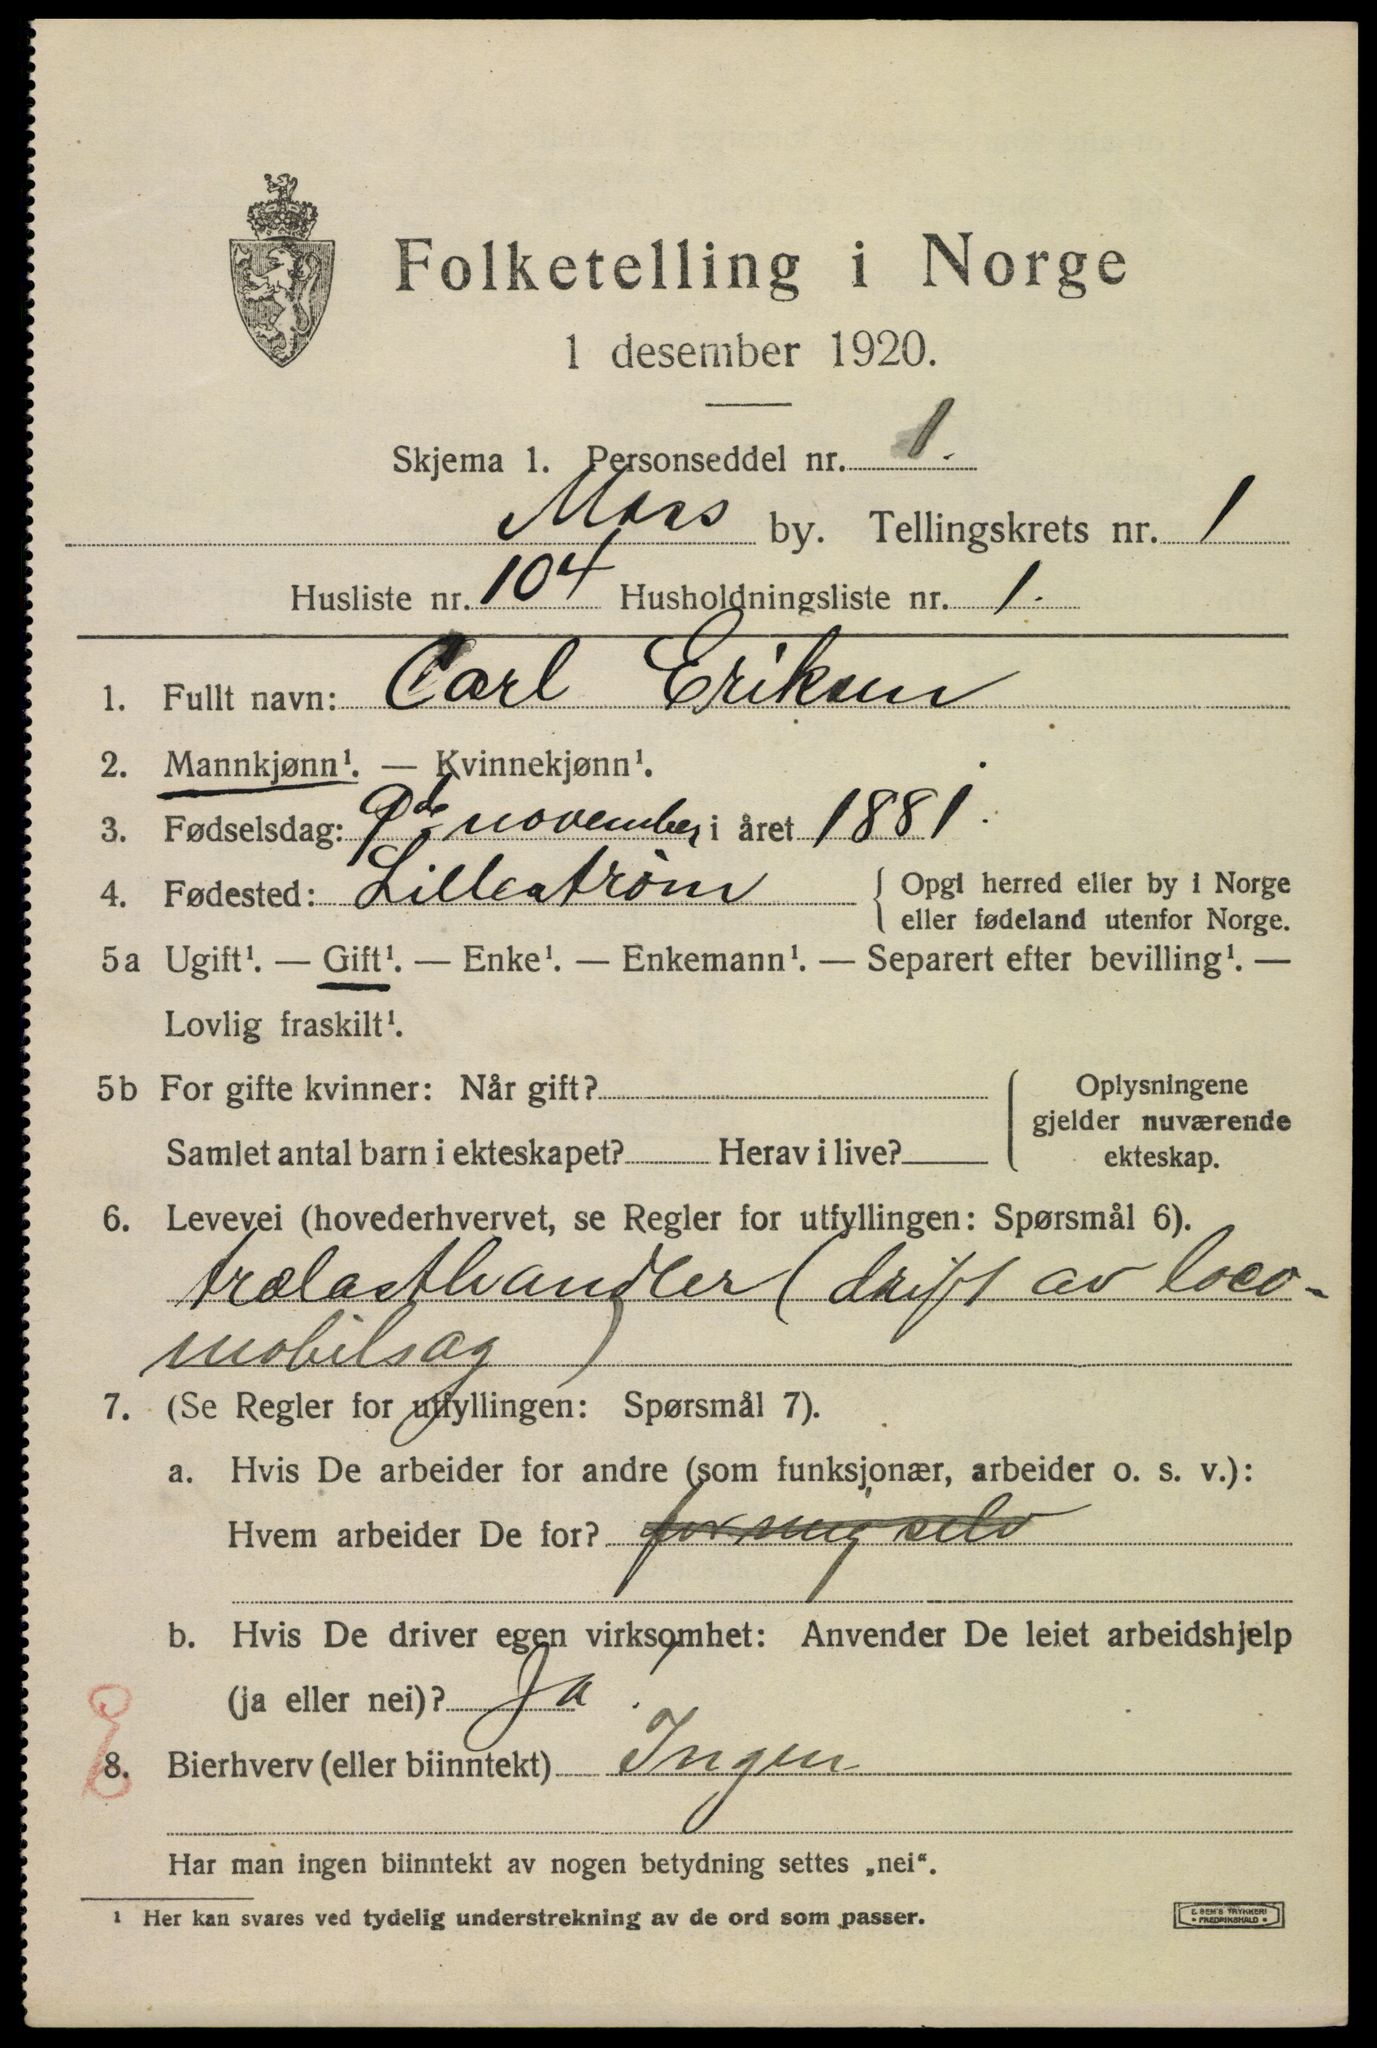 Folketelling i Norge
1 desember 1920.
Skjema 1. Personseddel nr. 1.
Moss by. Tellingskrets nr. 1
Husliste nr. 104 Husholdningsliste nr. 1.
1. Fullt navn: Carl Eriksen
2. Mannkjønn¹. — Kvinnekjønn¹.
3. Fødselsdag: 9de november i året 1881.
4. Fødested: Lillestrøm { Opgi herred eller by i Norge
eller fødeland utenfor Norge.
5a Ugift¹. — Gift¹. — Enke¹. — Enkemann¹. — Separert efter bevilling¹. —
Lovlig fraskilt¹.
5b For gifte kvinner: Når gift? { Oplysningene
gjelder nuværende
Samlet antal barn i ekteskapet? Herav i live? ekteskap.
6. Levevei (hovederhvervet, se Regler for utfyllingen: Spørsmål 6).
trælasthandler (drift av loco-
mobilsag)
7. (Se Regler for utfyllingen: Spørsmål 7).
a. Hvis De arbeider for andre (som funksjonær, arbeider o. s. v.):
Hvem arbeider De for? for mig selv
b. Hvis De driver egen virksomhet: Anvender De leiet arbeidshjelp
(ja eller nei)? Ja!
8. Bierhverv (eller biinntekt) Ingen
Har man ingen biinntekt av nogen betydning settes „nei“.
¹ Her kan svares ved tydelig understrekning av de ord som passer.
E. SEM'S TRYKKERI
• FREDRIKSHALD •